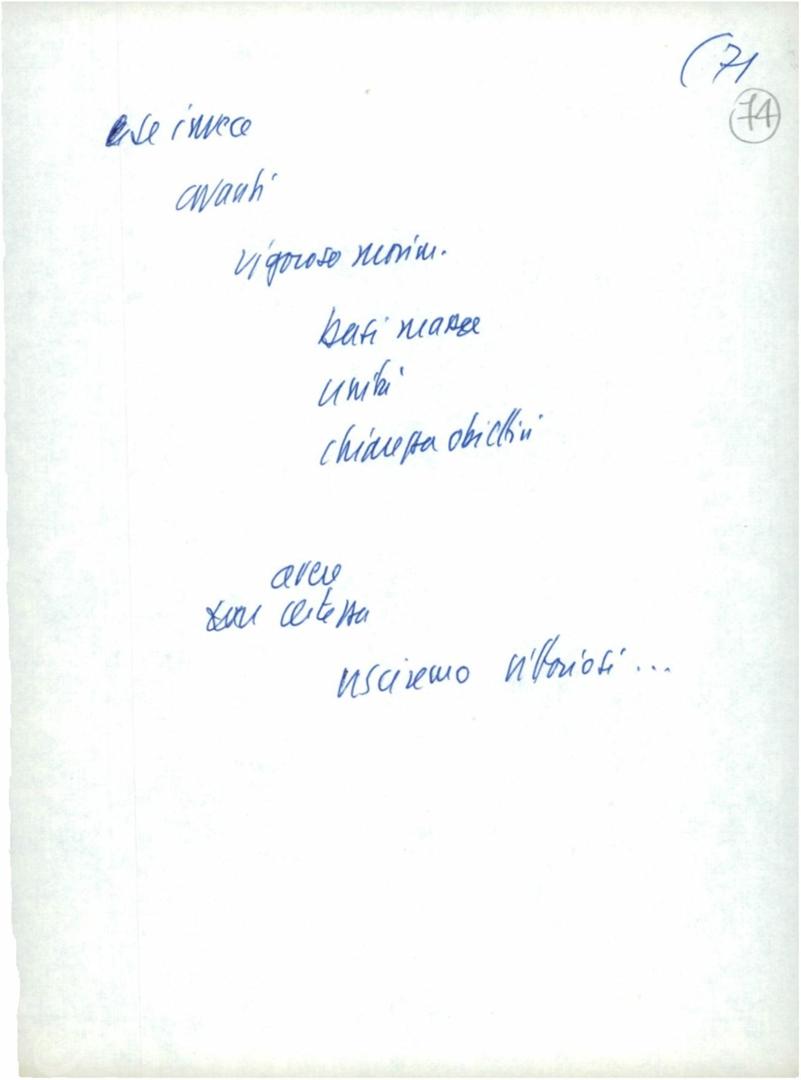 (71
74
e se invece
avanti
vigoroso movim.
basi massa
unità
chiarezza obiettivi
avere
certezza
usciremo vittoriosi...